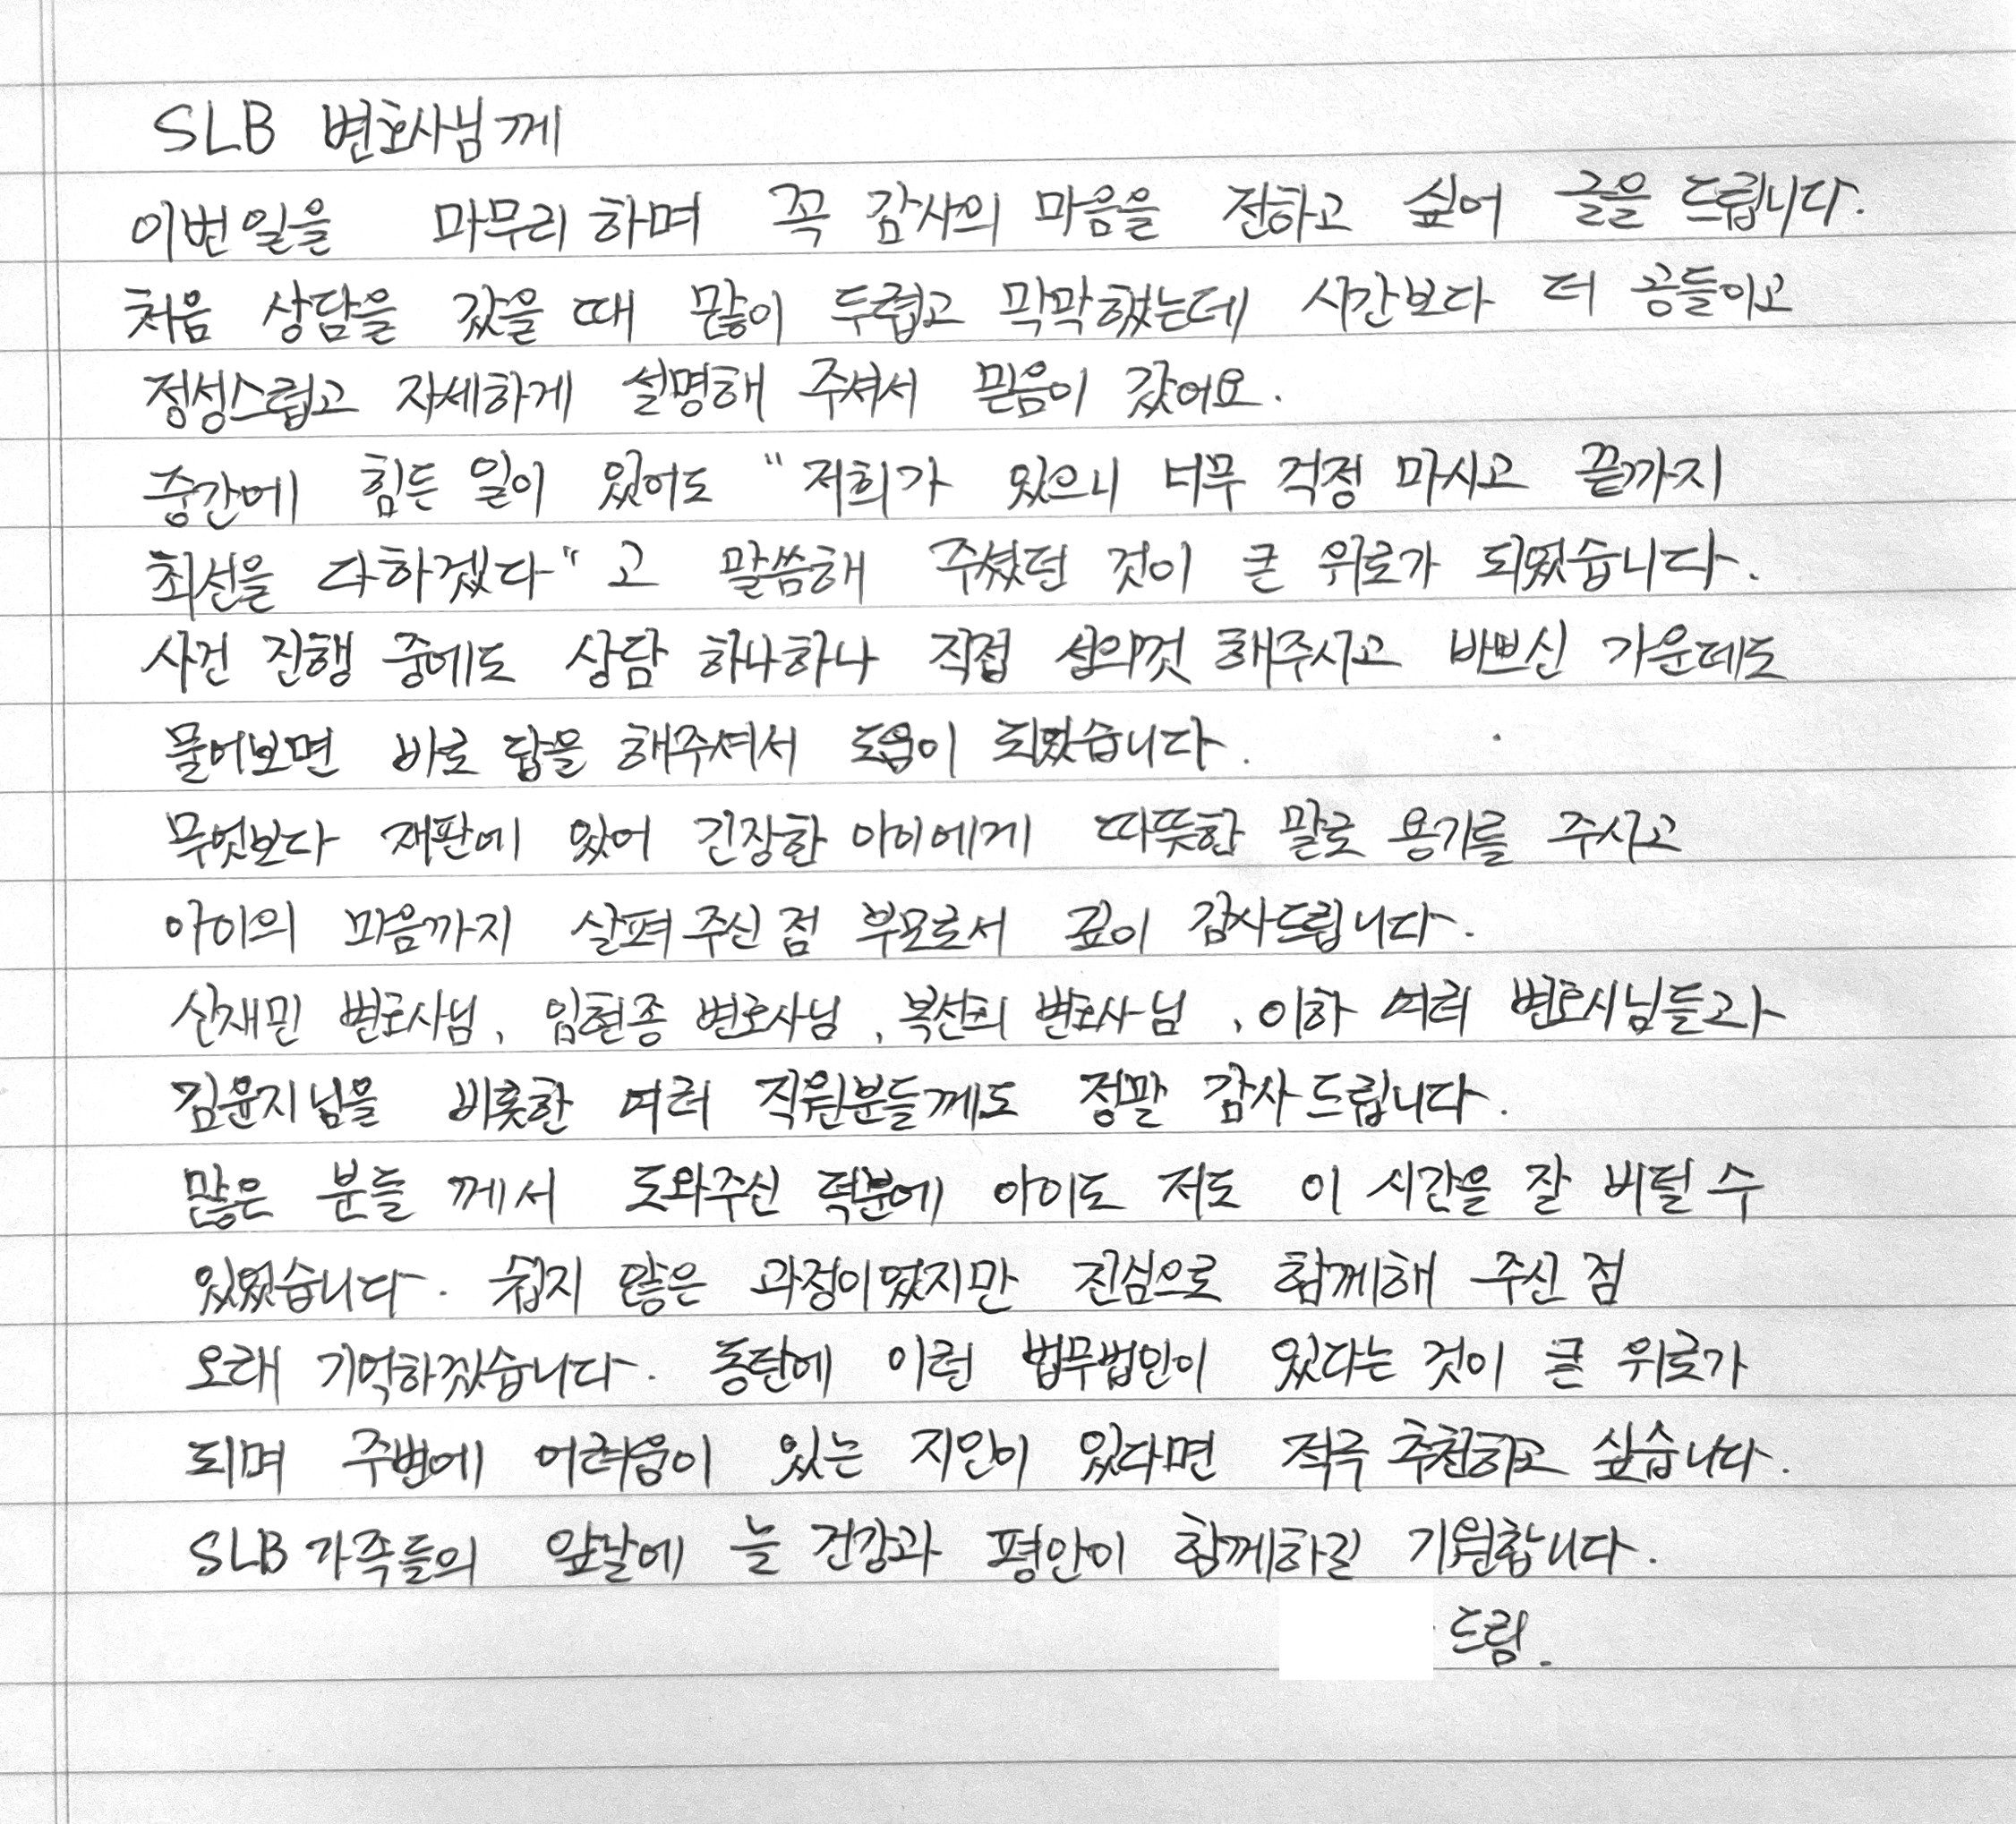 SLB 변호사님께
이번일을 마무리하며 꼭 감사의 마음을 전하고 싶어 글을 드립니다.
처음 상담을 갔을 때 많이 두렵고 막막했는데 시간보다 더 공들이고
정성스럽고 자세하게 설명해 주셔서 믿음이 갔어요.
중간에 힘든 일이 있어도 "저희가 있으니 너무 걱정 마시고 끝까지
최선을 다하겠다"고 말씀해 주셨던 것이 큰 위로가 되었습니다.
사건 진행 중에도 상담 하나하나 직접 성의껏 해주시고 바쁘신 가운데도
물어보면 바로 답을 해주셔서 도움이 되었습니다.
무엇보다 재판에 있어 긴장한 아이에게 따뜻한 말로 용기를 주시고
아이의 마음까지 살펴주신 점 부모로서 깊이 감사드립니다.
신재민 변호사님, 임현종 변호사님, 복선희 변호사님, 이하 여러 변호사님들과
김윤지님을 비롯한 여러 직원분들께도 정말 감사드립니다.
많은 분들 께서 도와주신 덕분에 아이도 저도 이 시간을 잘 버틸 수
있었습니다. 쉽지 않은 과정이었지만 진심으로 함께해 주신 점
오래 기억하겠습니다. 동탄에 이런 법무법인이 있다는 것이 큰 위로가
되며 주변에 어려움이 있는 지인이 있다면 적극 추천하고 싶습니다.
SLB 가족들의 앞날에 늘 건강과 평안이 함께하길 기원합니다.
드림.